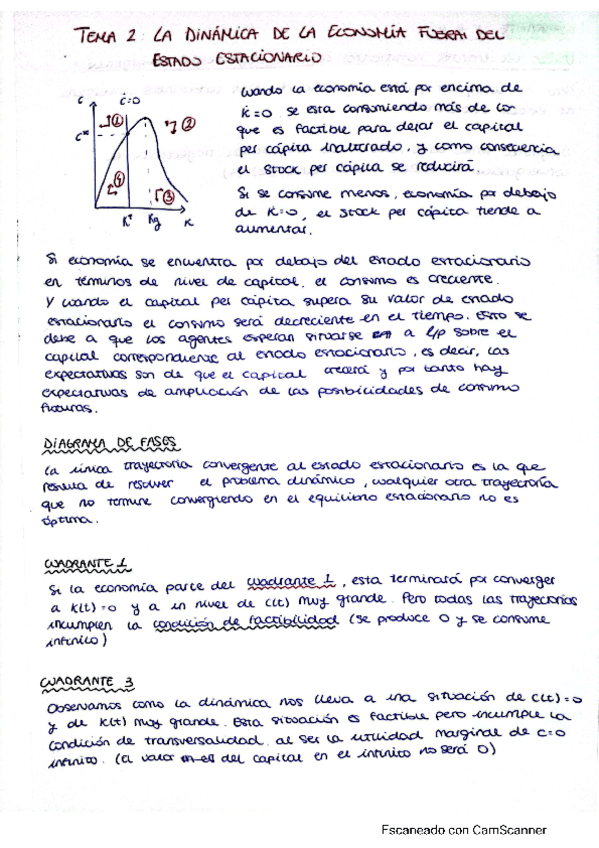 TEMA 2: LA DINÁMICA DE LA ECONOMÍA FUERA DEL
ESTADO ESTACIONARIO
c
ċ=0
c*
①
②
③
④
K*
Kg
K
Cuando la economía está por encima de
K̇=0. se esta consumiendo más de lo
que es factible para dejar el capital
per cápita inalterado, y como consecuencia
el stock per cápita se reducirá.
Si se consume menos, economía por debajo
de K̇=0, el stock per cápita tiende a
aumentar.
Si economía se encuentra por debajo del estado estacionario
en términos de nivel de capital, el consumo es creciente.
Y cuando el capital per cápita supera su valor de estado
estacionario el consumo será decreciente en el tiempo. Esto se
debe a que los agentes esperan situarse a l/p sobre el
capital correspondiente al estado estacionario, es decir, las
expectativas son de que el capital crecerá y por tanto hay
expectativas de ampliación de las posibilidades de consumo
futuras.
DIAGRAMA DE FASES
La única trayectoria convergente al estado estacionario es la que
resulta de resolver el problema dinámico, cualquier otra trayectoria
que no termine convergiendo en el equilibrio estacionario no es
óptima.
CUADRANTE 1
Si la economía parte del cuadrante 1, esta terminará por converger
a K(t)=0 y a un nivel de c(t) muy grande. Pero todas las trayectorias
incumplen la condición de factibilidad (se produce 0 y se consume
infinito)
CUADRANTE 3
Observamos como la dinámica nos lleva a una situación de c(t)=0
y de K(t) muy grande. Esta situación es factible pero incumple la
condición de transversalidad, al ser la utilidad marginal de c=0
infinito. (el valor del capital en el infinito no será 0)
Escaneado con CamScanner